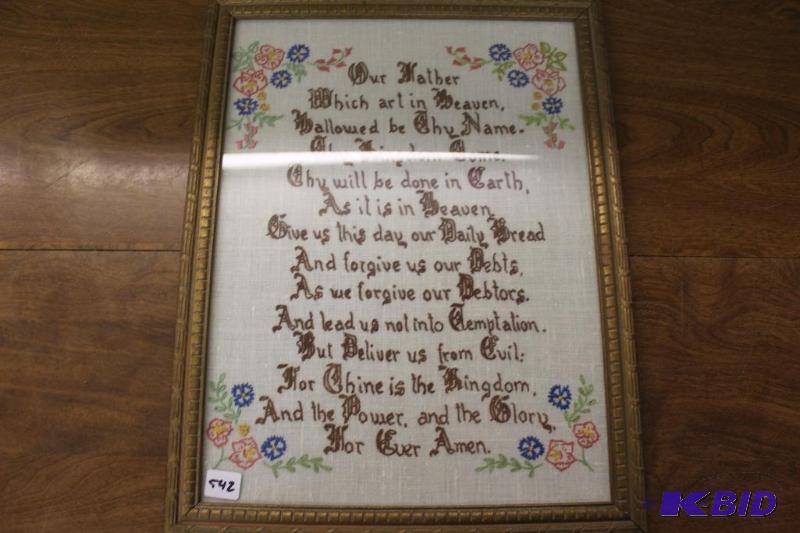 Our Father
Which art in Heaven,
Hallowed be Thy Name.
Thy Kingdom Come.
Thy will be done in Earth,
As it is in Heaven,
Give us this day our Daily Bread
And forgive us our Debts,
As we forgive our Debtors.
And lead us not into Temptation.
But Deliver us from Evil:
For Thine is the Kingdom,
And the Power, and the Glory,
For Ever Amen.
542
K-BID